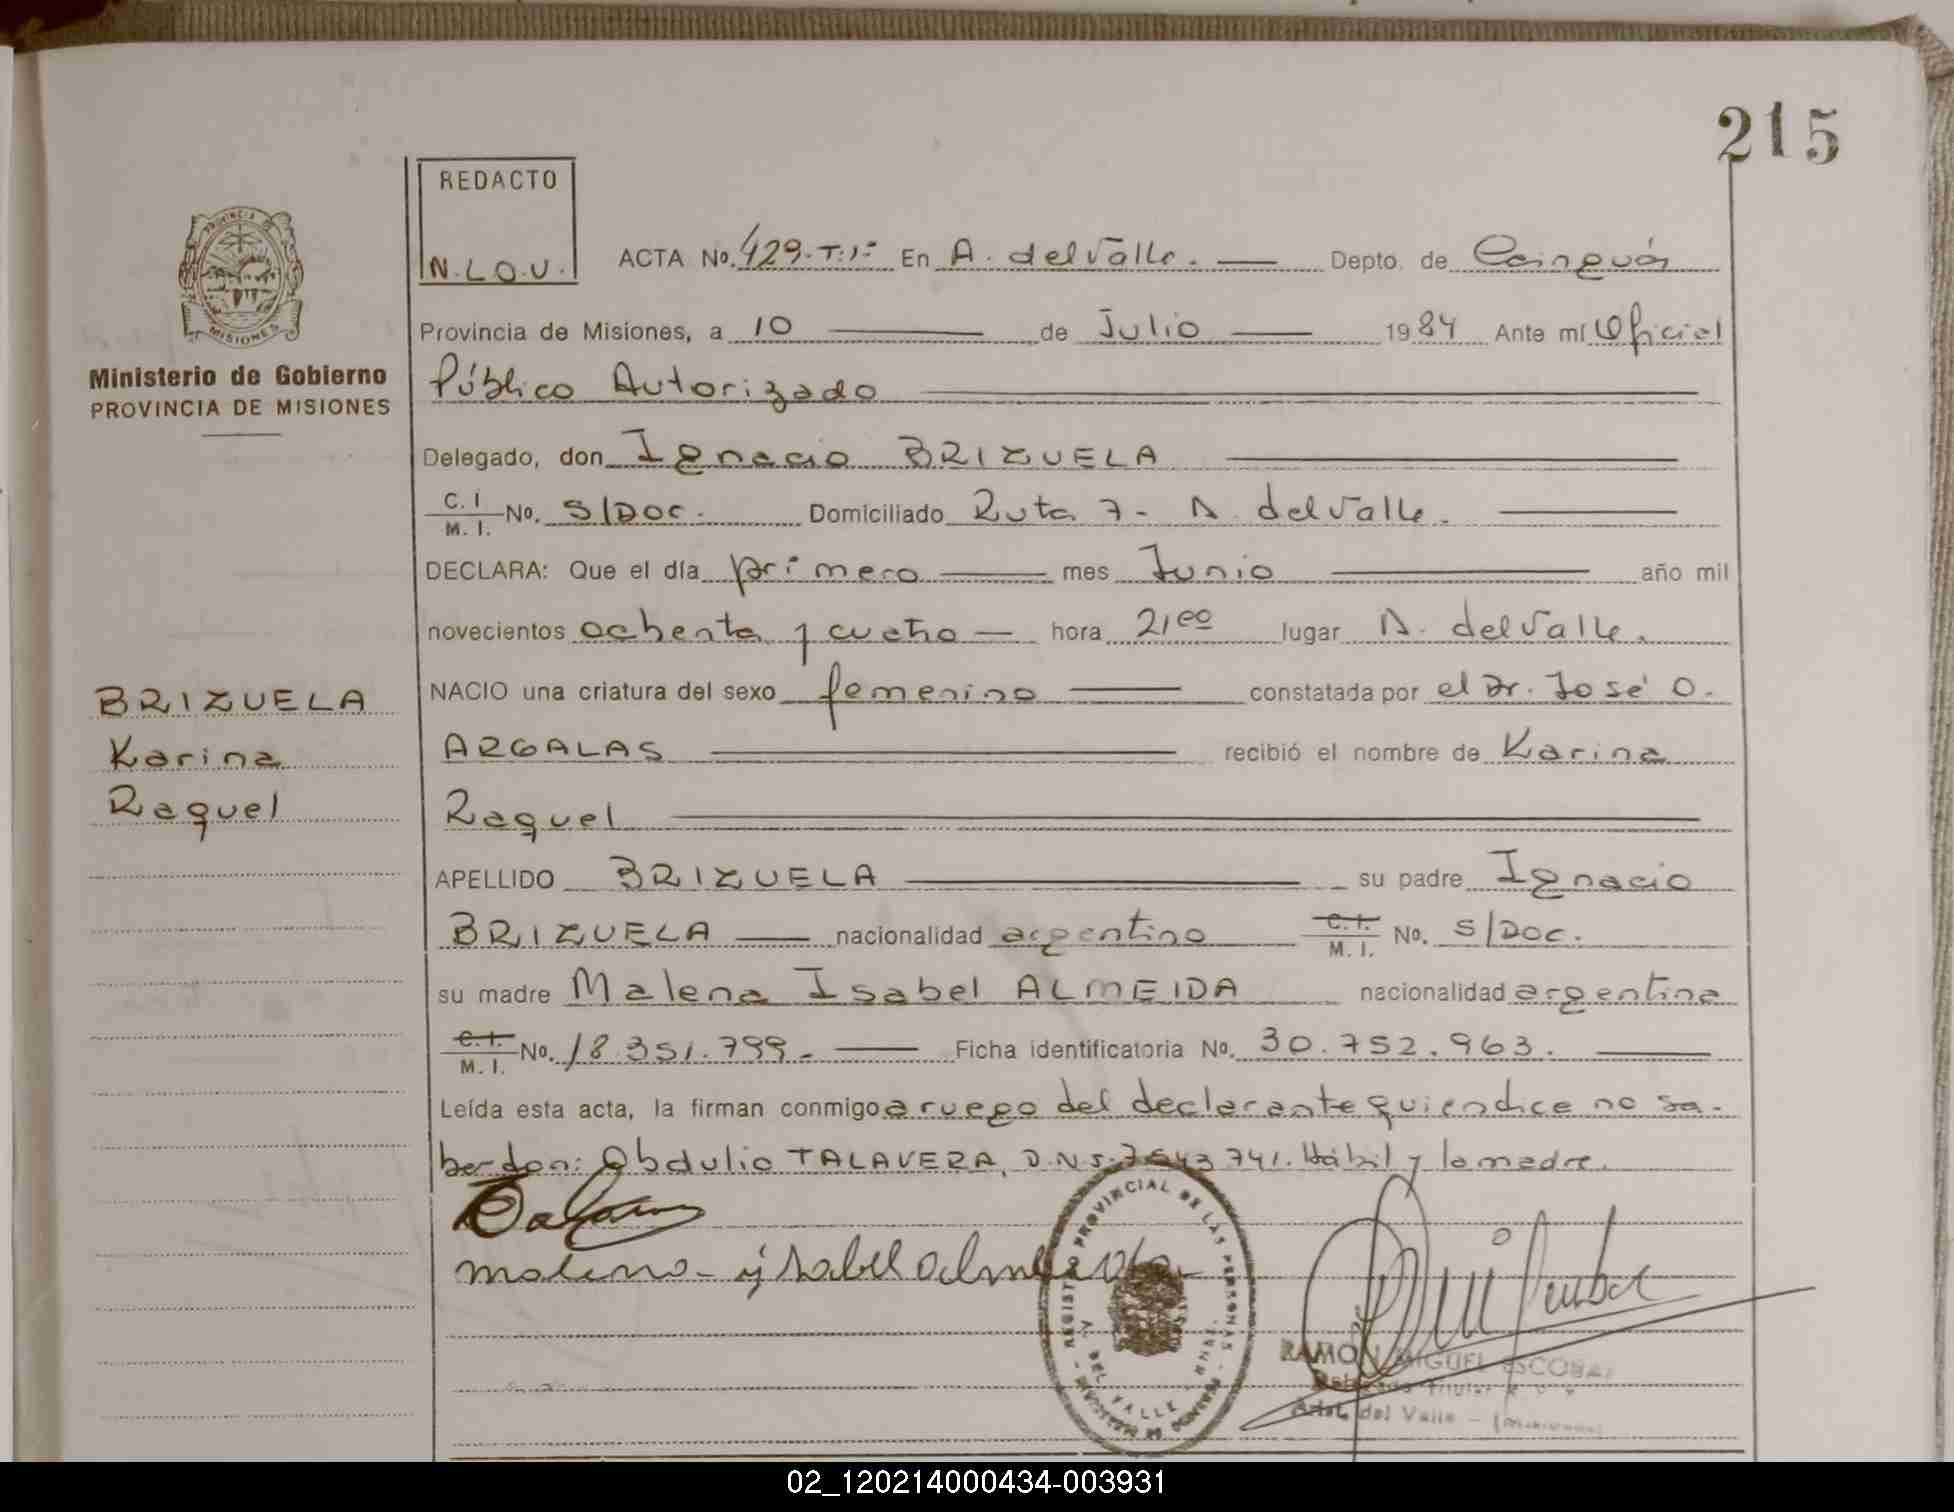 215
REDACTO
N.L.O.V.
ACTA No. 429-T:1º En A. del Valle. Depto. de Cainguás
Provincia de Misiones, a 10 de Julio 1984 Ante mí Oficial
Público Autorizado
Delegado, don Ignacio BRIZUELA
C. I / M. I. No. S/Doc. Domiciliado Ruta 7- A. del Valle.
DECLARA: Que el día primero mes Junio año mil
novecientos ochenta y cuatro hora 21,00 lugar A. del Valle.
NACIO una criatura del sexo femenino constatada por el Dr. José O.
ARGALAS recibió el nombre de Karina
Raquel
APELLIDO BRIZUELA su padre Ignacio
BRIZUELA nacionalidad argentino C. I. / M. I. No. S/Doc.
su madre Malena Isabel ALMEIDA nacionalidad argentina
C. I. / M. I. No. 18.351.799.- Ficha identificatoria No. 30.752.963.
Leída esta acta, la firman conmigo a ruego del declarante quien dice no sa-
ber don: Obdulio TALAVERA, D.N.I. 7643741. Hábil y la madre.
malena ysabel almeida
PROVINCIA DE
MISIONES
Ministerio de Gobierno
PROVINCIA DE MISIONES
BRIZUELA
Karina
Raquel
REGISTRO PROVINCIAL DE LAS PERSONAS
A. DEL VALLE
RAMON MIGUEL ESCOBAR
Delegado Titular
Arist. del Valle - (Misiones)
02_120214000434-003931